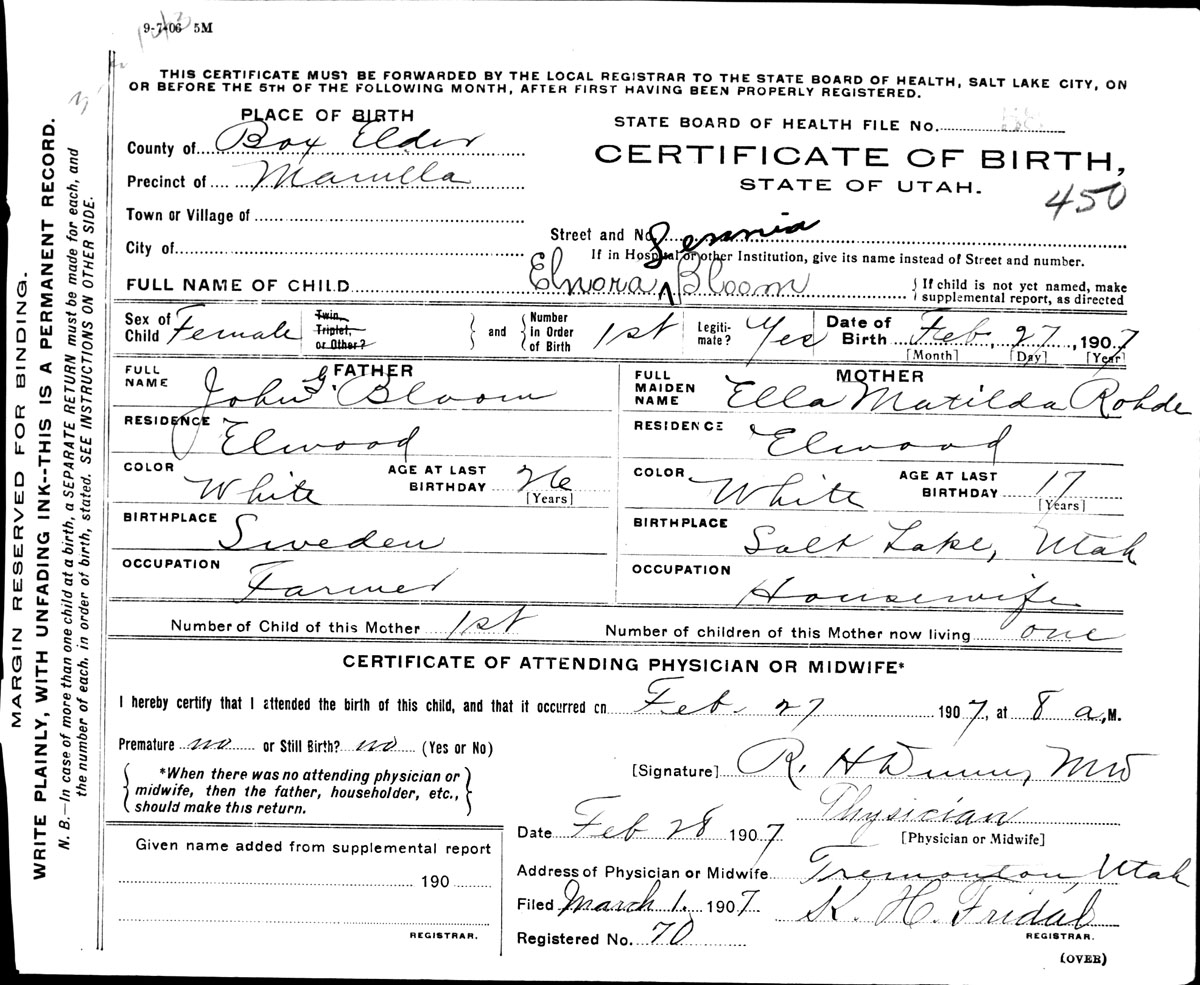 9-7-06 5M
THIS CERTIFICATE MUST BE FORWARDED BY THE LOCAL REGISTRAR TO THE STATE BOARD OF HEALTH, SALT LAKE CITY, ON
OR BEFORE THE 5TH OF THE FOLLOWING MONTH, AFTER FIRST HAVING BEEN PROPERLY REGISTERED.
PLACE OF BIRTH
County of Box Elder
Precinct of
Town or Village of
City of
STATE BOARD OF HEALTH FILE No.
CERTIFICATE OF BIRTH,
STATE OF UTAH.
450
Street and No.
If in Hospital or other Institution, give its name instead of Street and number.
Lennia
FULL NAME OF CHILD Elnora ^ Bloom
If child is not yet named, make
supplemental report, as directed
Sex of Child Female
Twin, Triplet, or Other?
and
Number in Order of Birth 1st
Legitimate? Yes
Date of Birth Feb, 27, 1907
[Month] [Day] [Year]
FATHER
FULL NAME John G. Bloom
RESIDENCE Elwood
COLOR White AGE AT LAST BIRTHDAY 26
[Years]
BIRTHPLACE Sweden
OCCUPATION Farmer
MOTHER
FULL MAIDEN NAME Ella Matilda Rohde
RESIDENCE Elwood
COLOR White AGE AT LAST BIRTHDAY 17
[Years]
BIRTHPLACE Salt Lake, Utah
OCCUPATION Housewife
Number of Child of this Mother 1st Number of children of this Mother now living one
CERTIFICATE OF ATTENDING PHYSICIAN OR MIDWIFE*
I hereby certify that I attended the birth of this child, and that it occurred on Feb. 27 1907, at 8 a, M.
Premature no or Still Birth? no (Yes or No)
*When there was no attending physician or
midwife, then the father, householder, etc.,
should make this return.
[Signature] R. H
Physician
[Physician or Midwife]
Date Feb 28 1907
Address of Physician or Midwife Tremonton, Utah
Filed March 1, 1907 K. H. Fridal
REGISTRAR.
Registered No. 70
(OVER)
Given name added from supplemental report
190
REGISTRAR.
MARGIN RESERVED FOR BINDING.
WRITE PLAINLY, WITH UNFADING INK--THIS IS A PERMANENT RECORD.
N. B.—In case of more than one child at a birth, a SEPARATE RETURN must be made for each, and
the number of each, in order of birth, stated. SEE INSTRUCTIONS ON OTHER SIDE.